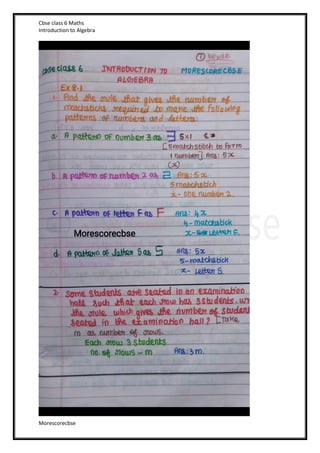 Cbse class 6 Maths
Introduction to Algebra
cbse class 6 INTRODUCTION TO MORESCORECBSE
ALGEBRA
Ex 8.1
1. Find the rule that gives the number of
matchsticks required to make the following
patterns of numbers and letters.
a. A pattern of number 3 as 5×1
[5 matchstitch to form
1 number] Ans: 5x
(x)
b. A pattern of number 2 as 2 Ans: 5x
5 matchstich
x - one number 2.
c. A pattern of letter F as F Ans: 4x
4 - matchstick
Morescorecbse x- letter F.
d. A pattern of letter S as S Ans: 5x
5 - matchstick
x - letter S.
2. Some students are seated in an examination
hall such that each row has 3 students. wri
the rule which gives the number of student
seated in the examination hall? [Take
m as number of rows.
Each row 3 students
no. of rows - m Ans: 3m.
Morescorecbse